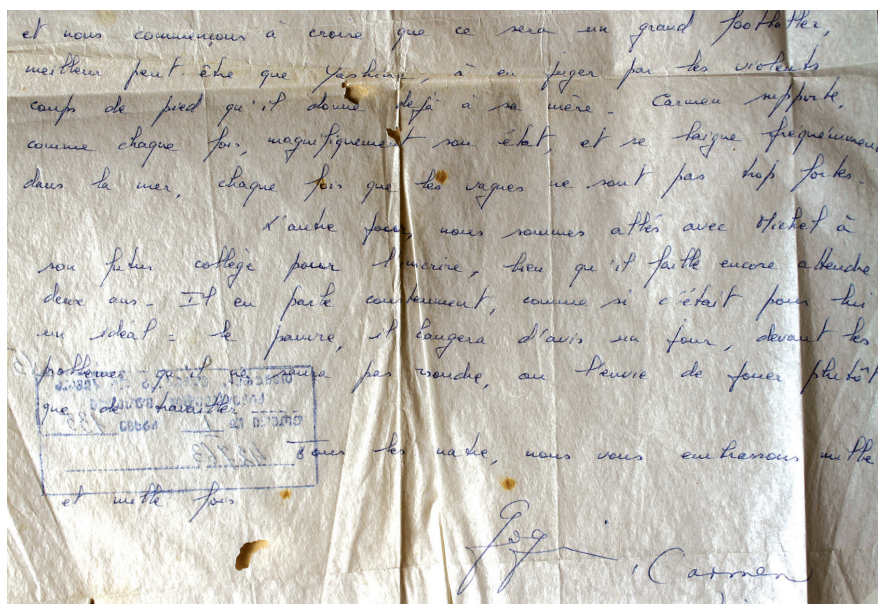 et nous commençons à croire que ce sera un grand footballer,
meilleur peut-être que Yashine, à en juger par les violents
coups de pied qu'il donne déjà à sa mère. Carmen supporte,
comme chaque fois, magnifiquement son état, et se baigne fréquemment
dans la mer, chaque fois que les vagues ne sont pas trop fortes.
L'autre jour, nous sommes allés avec Michel à
son futur collège pour l'inscrire, bien qu'il faille encore attendre
deux ans. Il en parle constamment, comme si c'était pour lui
un idéal = le pauvre, il changera d'avis un jour, devant les
problèmes qu'il ne saura pas résoudre, ou l'envie de jouer plutôt
que de travailler.
Tous les quatre, nous vous embrassons mille
et mille fois
Carmen